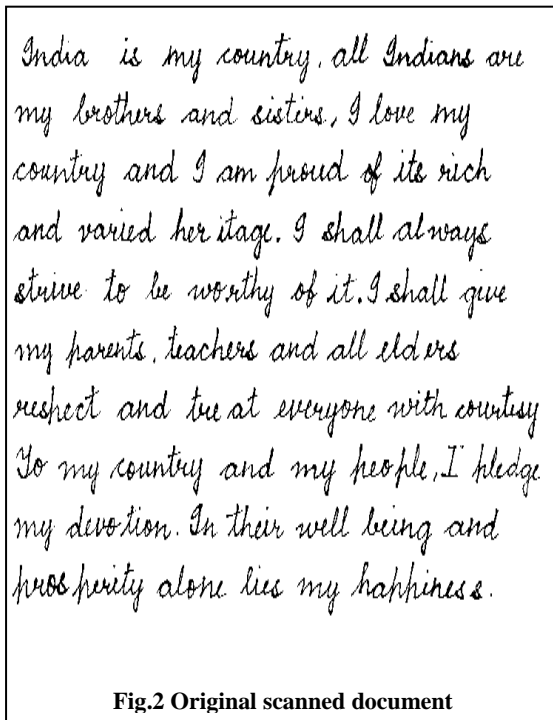 India is my country, all Indians are
my brothers and sisters, I love my
country and I am proud of its rich
and varied her itage. I shall always
strive to be worthy of it. I shall give
my parents, teachers and all elders
respect and tre at everyone with courtesy
To my country and my people, I pledge
my devotion. In their well being and
prosperity alone lies my happiness.
Fig.2 Original scanned document